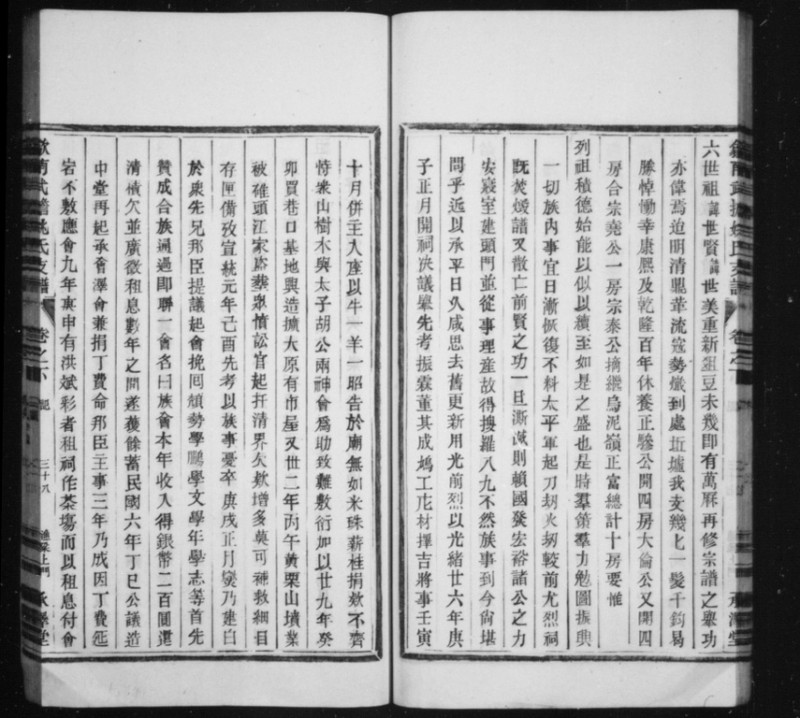 六世祖諱世賢諱世美重新俎豆未幾即有萬厤再修宗譜之舉功
亦偉焉迨明清鼎革流寇勢熾到處坵墟我支幾匕一髮千鈞易
勝悼慟幸康熙及乾隆百年休養正驂公開四房大倫公又開四
房合宗堯公一房宗泰公摘繼烏泥嶺正富總計十房要惟
列祖積德始能以似以續至如是之盛也是時羣策羣力勉圖振興
一切族內事宜日漸恢復不料太平軍起刀刼火刼較前尤烈祠
既焚燬譜又散亡前賢之功一旦澌滅則賴國發宏裕諸公之力
安寢室建頭門並從事理產故得搜羅八九不然族事到今尙堪
問乎近以承平日久咸思去舊更新用光前烈以光緒廿六年庚
子正月開祠決議舉先考振霖董其成鳩工庀材擇吉將事壬寅
十月併主入座以牛一羊一昭告於廟無如米珠薪桂捐欵不齊
特衆山樹木與太子胡公兩神會爲助致難敷衍加以廿九年癸
卯買巷口基地與造擴大原有市屋又卅二年丙午黃栗山墳業
被碓頭江家盜葬衆憤訟官起扦清界欠欵增多莫可補救細目
存匣備攷宣統元年己酉先考以族事憂卒庚戌正月燮乃建白
於衆先兄邦臣提議起會挽囘頽勢學鵬學文學年學志等首先
贊成合族通過即聯一會名曰族會本年收入得銀幣二百圓還
清債欠並廣徵租息數年之間遂獲餘蓄民國六年丁巳公議造
中堂再起承善澤會兼捐丁費命邦臣主事三年乃成因丁費延
宕不敷應會九年庚申有洪斌彩者租祠作茶塲而以租息付會
歙南武擔姚氏支譜 卷之下 記 三十八 承澤堂